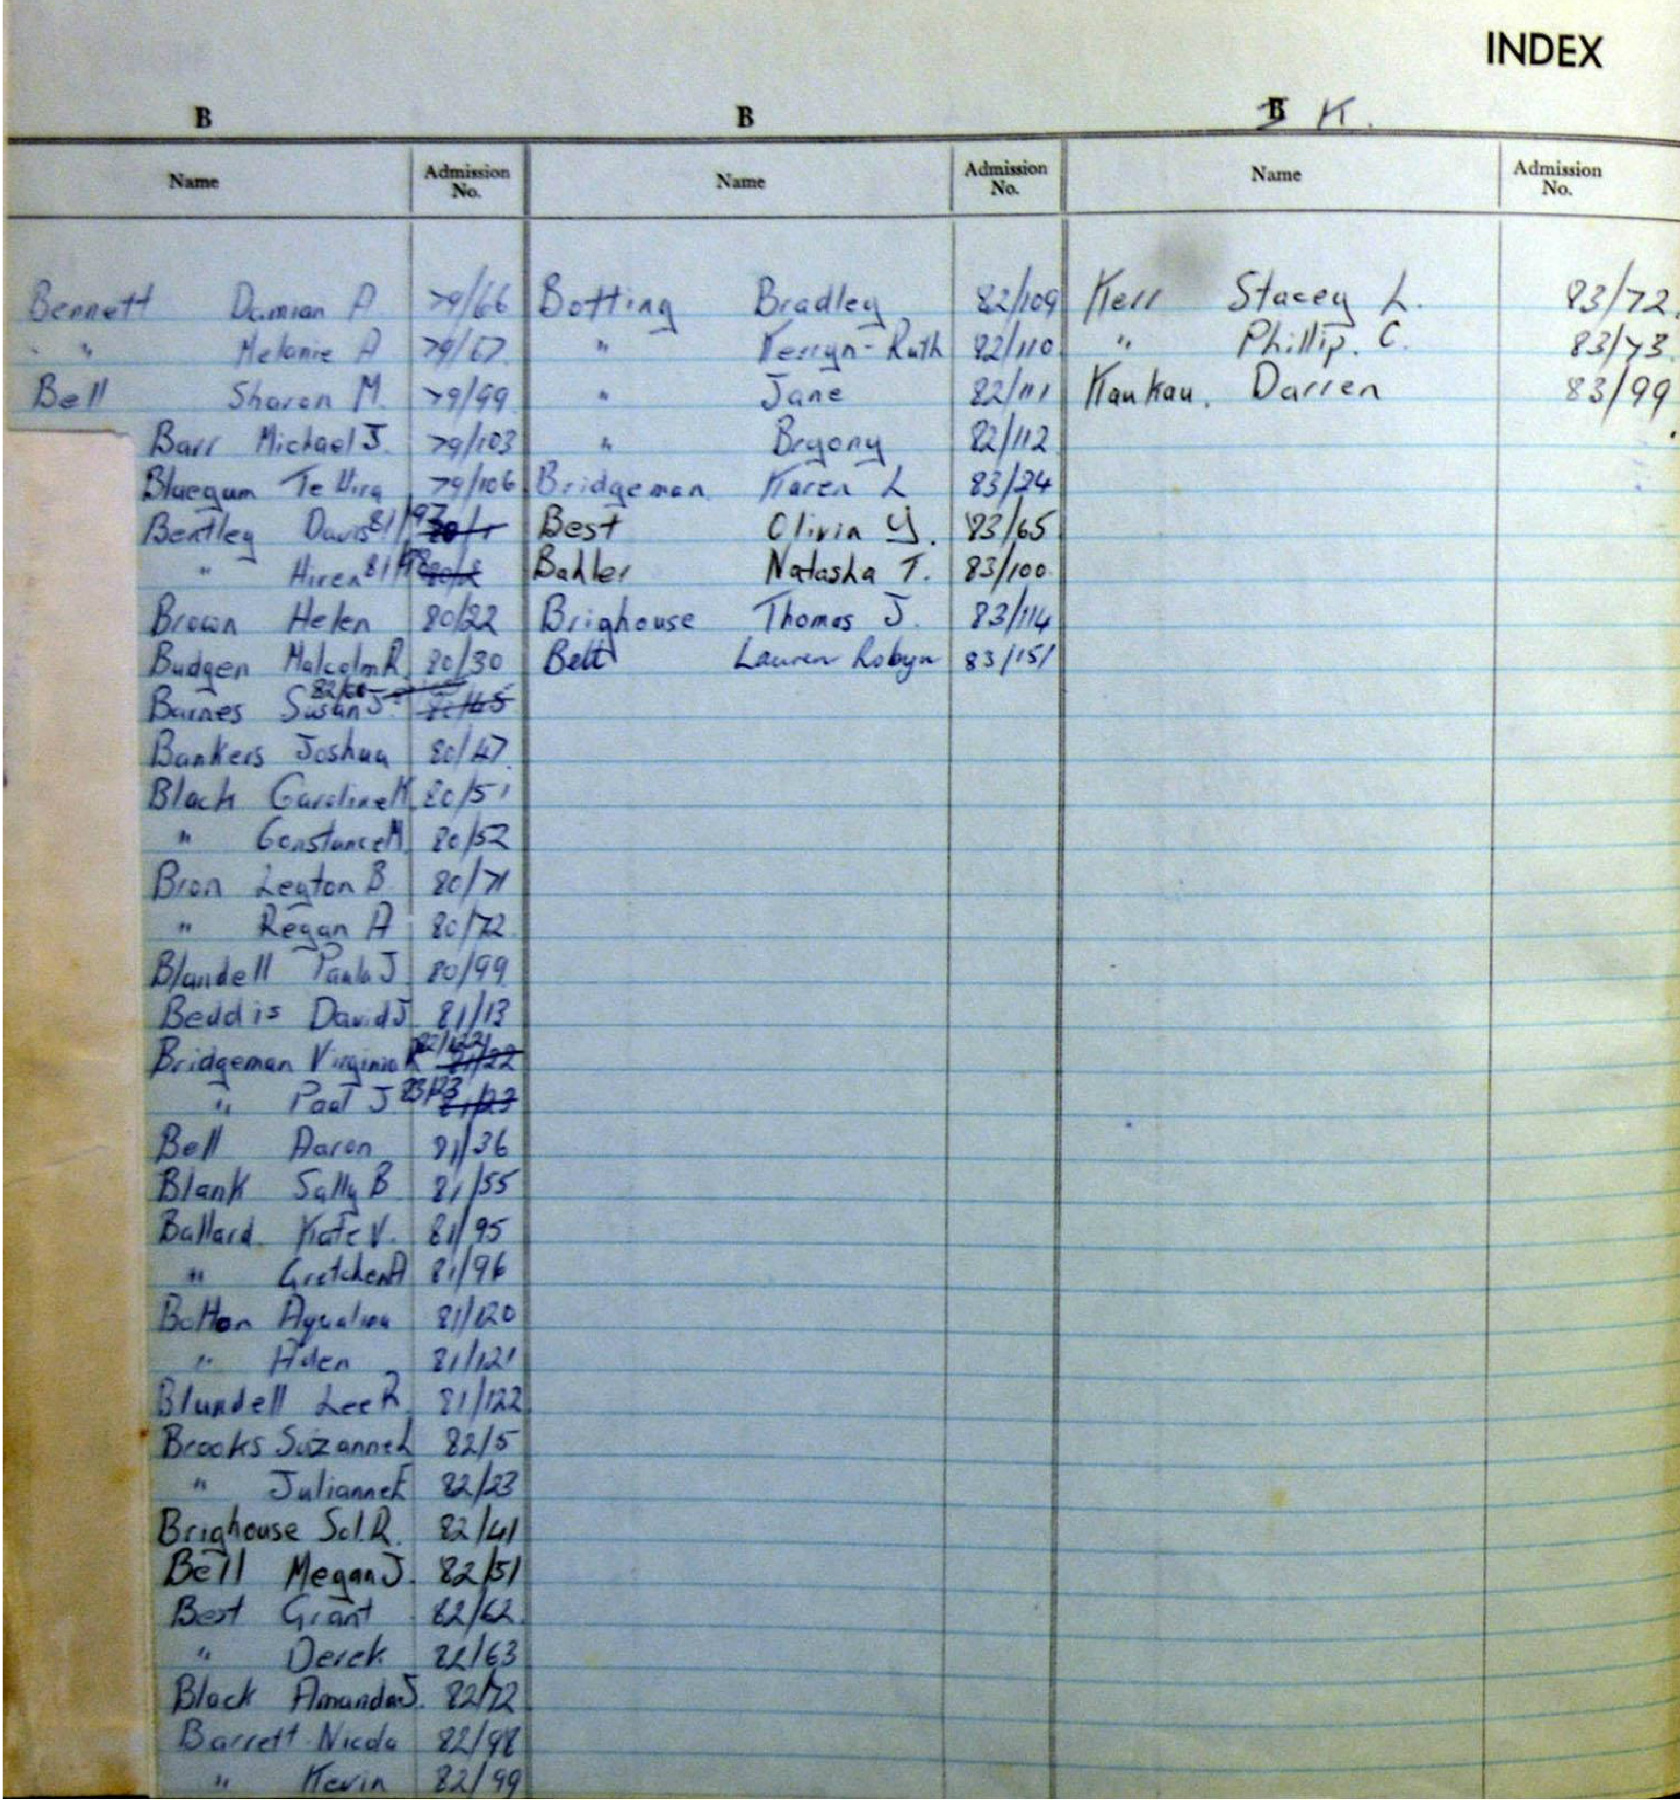 INDEX
B
Name Admission No.
Bennett Damian A 79/66
" Melanie A 79/67
Bell Sharon M. 79/99
Barr Michael J. 79/103
Bluegum Te Wira 79/106
Bentley Davis 81/97 80/1
" Hiren 81/98 80/2
Brown Helen 80/22
Budgen Malcolm R. 80/30
Barnes Susan J. 82/60 80/45
Bankers Joshua 80/47
Black Caroline K. 80/51
" Constance M. 80/52
Bron Leyton B. 80/71
" Regan A 80/72
Blundell Paula J. 80/99
Beddis David J 81/13
Bridgeman Virginia R 82/122 81/22
" Paul J 83/23 81/23
Bell Aaron 81/36
Blank Sally B 81/55
Ballard Kate V. 81/95
" Gretchen A 81/96
Botton Aqualina 81/120
" Aden 81/121
Blundell Lee R 81/122
Brooks Suzanne L 82/5
" Julianne E 82/23
Brighouse Sol. R. 82/41
Bell Megan J. 82/51
Best Grant 82/62
" Derek 82/63
Black Amanda J. 82/72
Barrett Nicola 82/98
" Kevin 82/99
B
Name Admission No.
Botting Bradley 82/109
" Kerryn-Ruth 82/110
" Jane 82/111
" Bryony 82/112
Bridgeman Karen L 83/24
Best Olivia Y. 83/65
Bahler Natasha T. 83/100
Brighouse Thomas J. 83/114
Belt Lauren Robyn 83/151
B K.
Name Admission No.
Kerr Stacey L. 83/72
" Phillip. C. 83/73
Kaukau. Darren 83/99